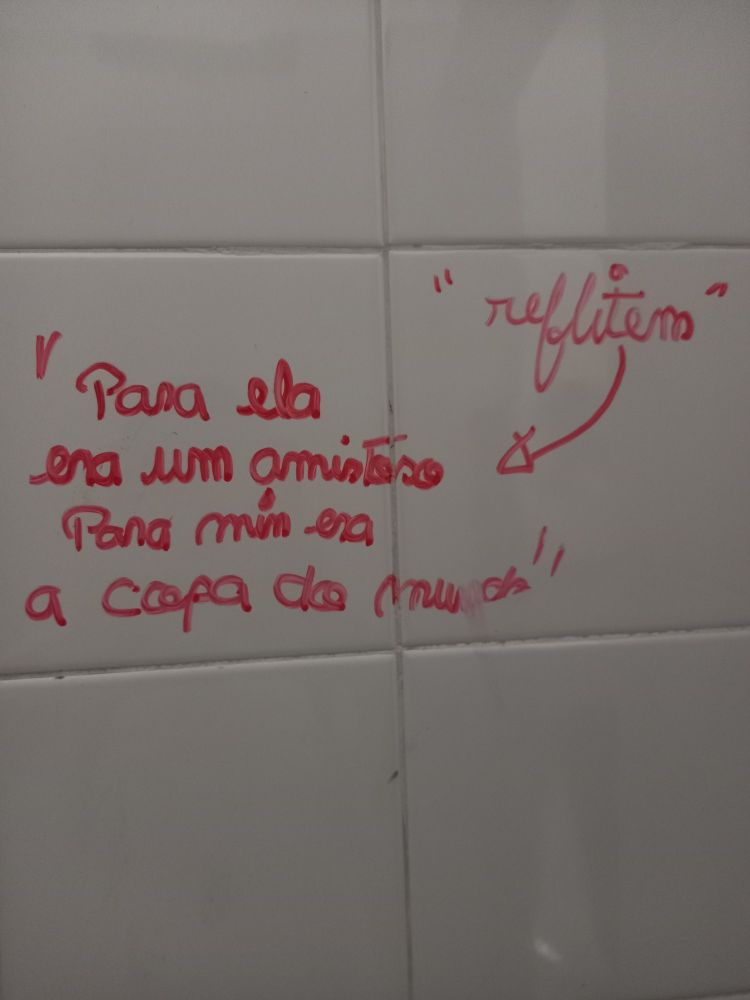 "reflitem"
"Para ela
era um amistoso
Para mim era
a copa do mundo"